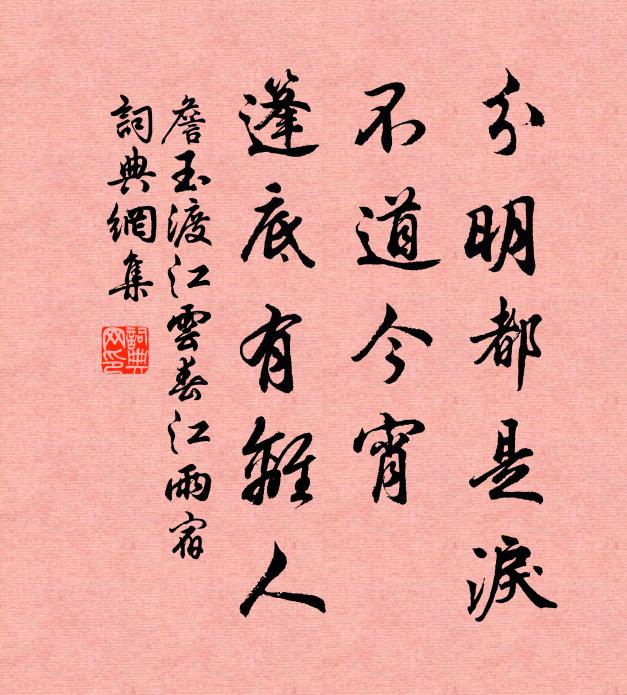 分明都是淚
不道今宵
篷底有離人
詹玉渡江雲春江雨宿
詞典網集
詞典网印